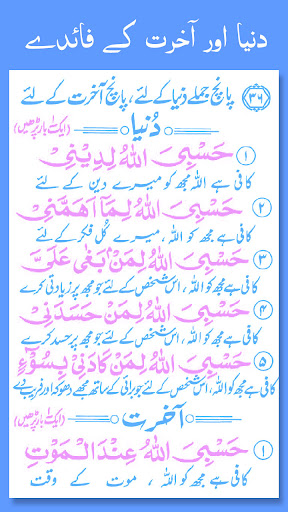 دنیا اور آخرت کے فائدے
۳۶ پانچ جملے دُنیا کے لئے، پانچ آخرت کے لئے
دُنیا (ایک بار پڑھیں)
۱ حَسْبِیَ اللّٰهُ لِدِیْنِیْ
کافی ہے اللہ مجھ کو میرے دین کے لئے
۲ حَسْبِیَ اللّٰهُ لِمَآ اَهَمَّنِیْ
کافی ہے مجھ کو اللہ، میرے کُل فکر کے لئے
۳ حَسْبِیَ اللّٰهُ لِمَنْۢ بَغٰی عَلَیَّ
کافی ہے مجھ کو اللہ، اس شخص کے لئے جو مجھ پر زیادتی کرے
۴ حَسْبِیَ اللّٰهُ لِمَنْ حَسَدَنِیْ
کافی ہے مجھ کو اللہ، اس شخص کے لئے جو مجھ پر حسد کرے
۵ حَسْبِیَ اللّٰهُ لِمَنْ كَادَنِیْ بِسُوْٓءٍ
کافی ہے مجھ کو اللہ، اس شخص کے لئے جو برائی کے ساتھ مجھے دھوکہ اور فریب دے
آخرت (ایک بار پڑھیں)
۱ حَسْبِیَ اللّٰهُ عِنْدَ الْمَوْتِ
کافی ہے مجھ کو اللہ، موت کے وقت